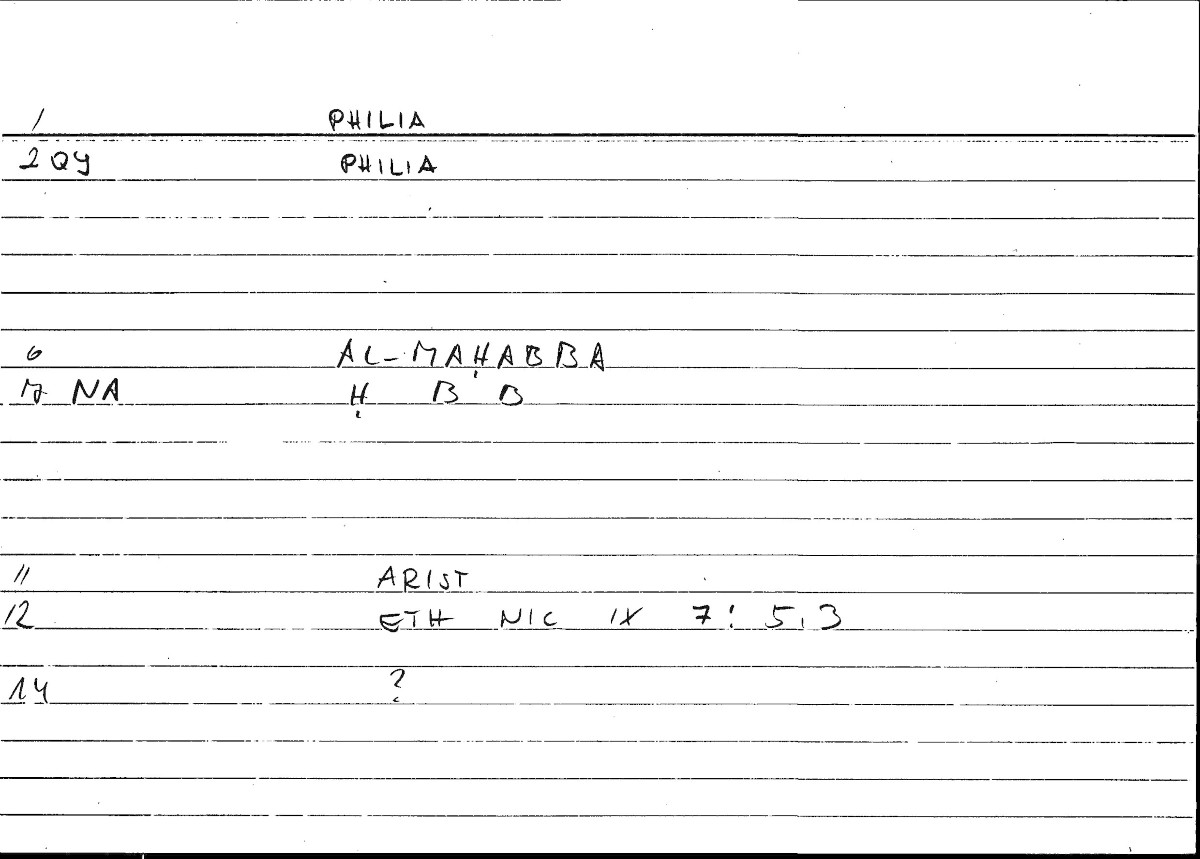 1 PHILIA
2 QY PHILIA
6 AL-MAḤABBA
NA Ḥ B B
11 ARIST
12 ETH NIC IX 7: 5,3
14 ?